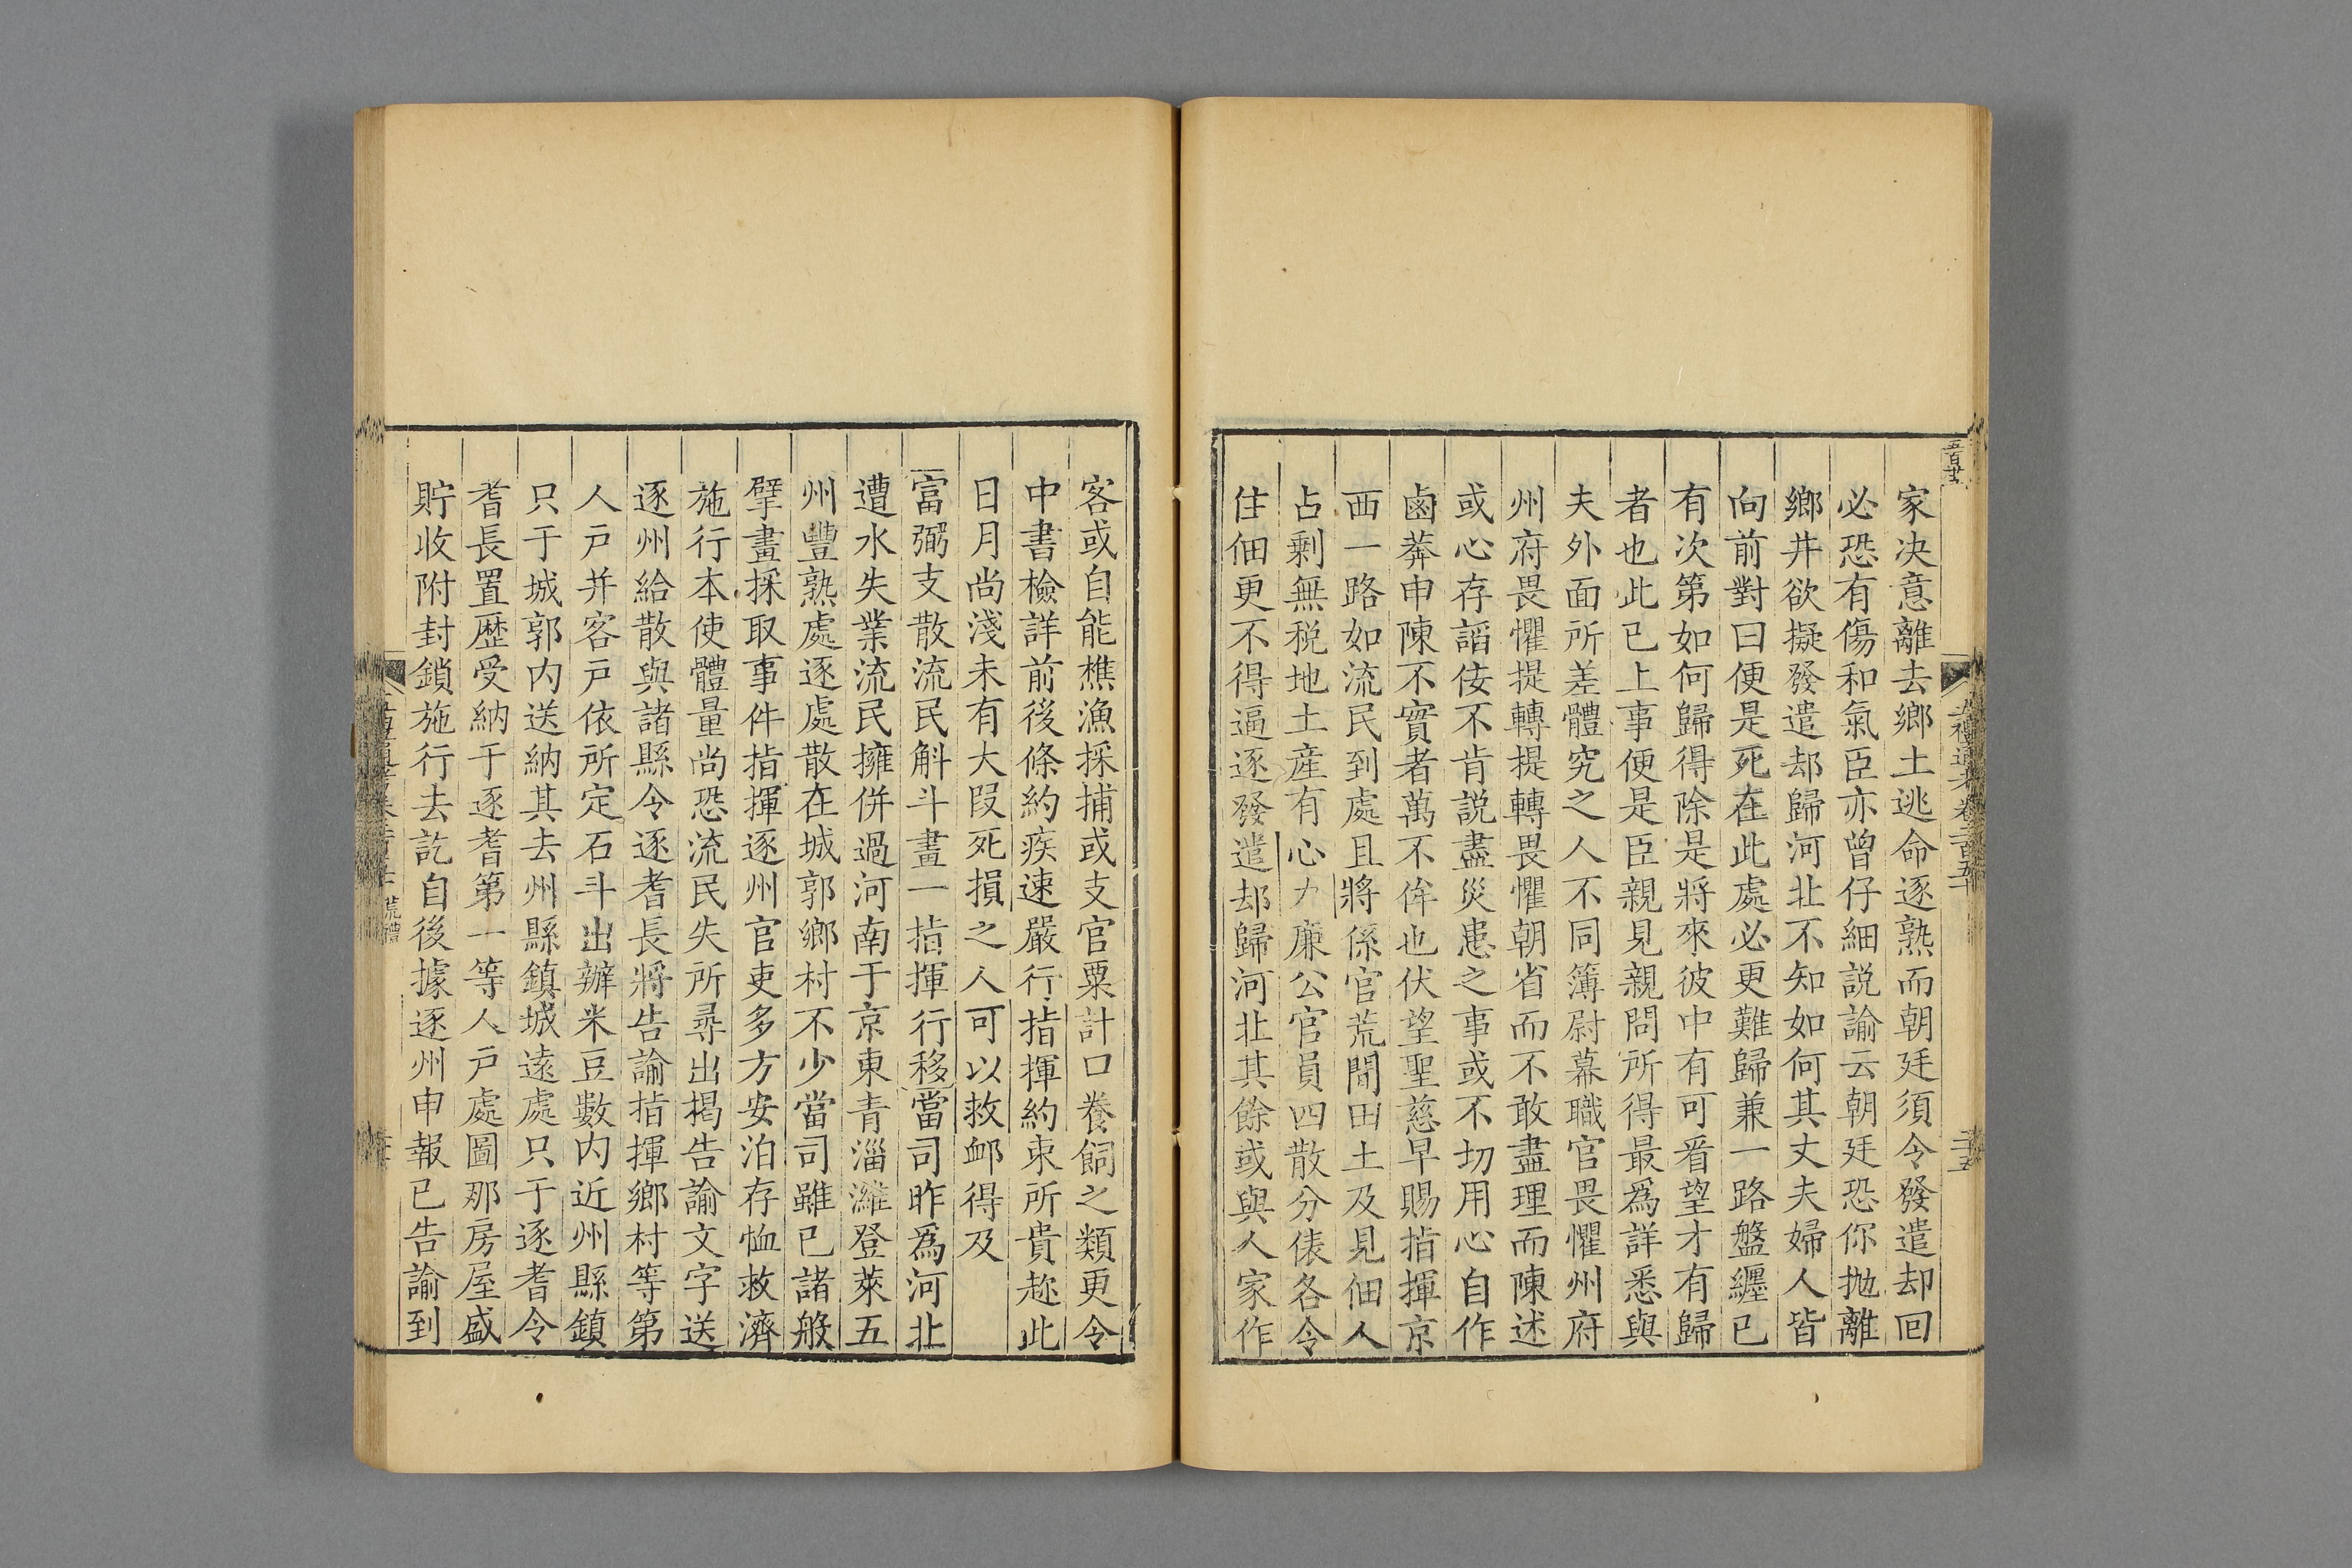 家决意離去鄉土逃命逐熟而朝廷須令發遣却回
必恐有傷和氣臣亦曾仔細説諭云朝廷恐你抛離
鄉井欲擬發遣却歸河北不知如何其丈夫婦人皆
向前對曰便是死在此處必更難歸兼一路盤纒已
有次第如何歸得除是將來彼中有可看望才有歸
者也此已上事便是臣親見親問所得最爲詳悉與
夫外面所差體究之人不同簿尉幕職官畏懼州府
州府畏懼提轉提轉畏懼朝省而不敢盡理而陳述
或心存謟佞不肯説盡災患之事或不切用心自作
鹵莽申陳不實者萬不侔也伏望聖慈早賜指揮京
西一路如流民到處且將係官荒閒田土及見佃人
占剩無税地土産有心力廉公官員四散分俵各令
住佃更不得逼逐發遣却歸河北其餘或與人家作
客或自能樵漁採捕或支官粟計口養飼之類更令
中書檢詳前後條約疾速嚴行指揮約束所貴趂此
日月尚淺未有大叚死損之人可以救衈得及
富弼支散流民斛斗畫一指揮行移當司昨爲河北
遭水失業流民擁併過河南于京東青淄濰登萊五
州豐熟處逐處散在城郭鄉村不少當司雖已諸般
擘畫採取事件指揮逐州官吏多方安泊存恤救濟
施行本使體量尚恐流民失所尋出揭告諭文字送
逐州給散與諸縣令逐耆長將告諭指揮鄉村等第
人戸并客戸依所定石斗出辦米豆數内近州縣鎮
只于城郭内送納其去州縣鎮城逺處只于逐耆令
耆長置歷受納于逐耆第一等人戸處圖那房屋盛
貯收附封鎖施行去訖自後據逐州申報已告諭到